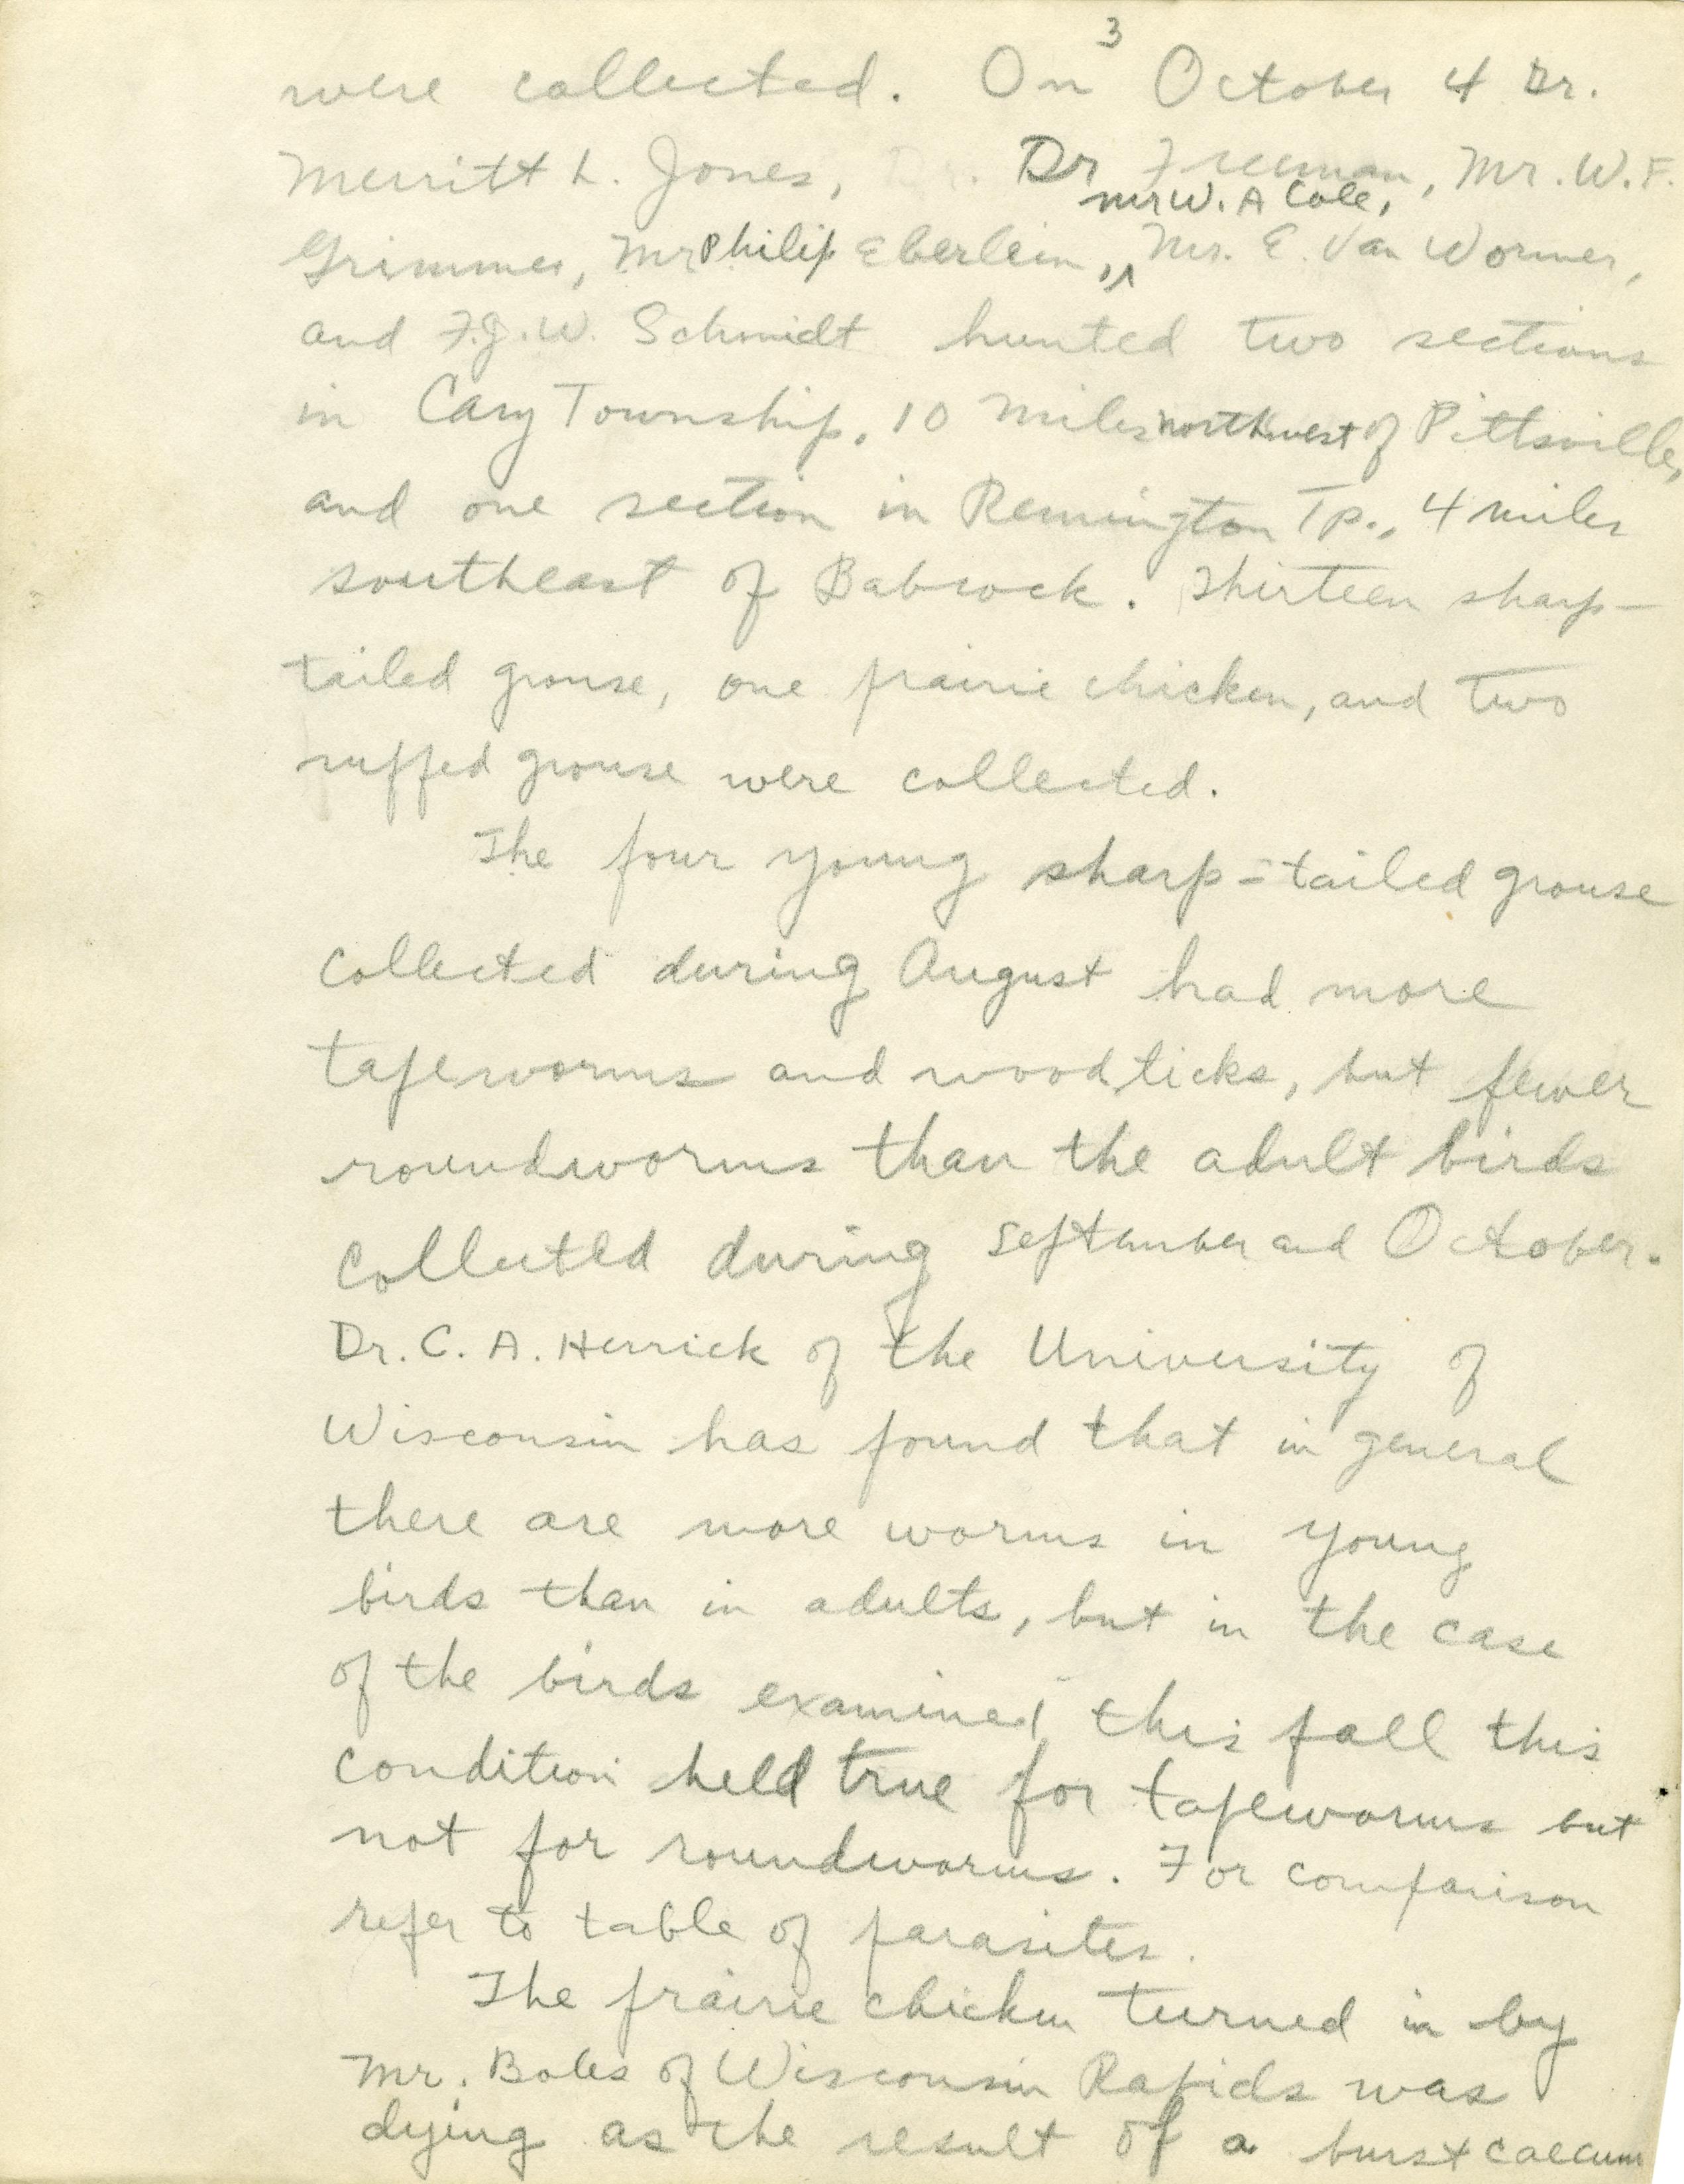 3
were collected. On October 4 Dr.
Merritt L. Jones, Dr. Dr Freeman, Mr. W. F.
Mr W. A Cole,
Grimmer, Mr Philip Eberlein, ,^ Mr. E. Van Wormer,
and F.J.W. Schmidt hunted two sections
in Cary Township, 10 miles northwest of Pittsville,
and one section in Remington Tp., 4 miles
southeast of Babcock. Thirteen sharp-
tailed grouse, one prairie chicken, and two
ruffed grouse were collected.
The four young sharp-tailed grouse
collected during August had more
tapeworms and wood ticks, but fewer
roundworms than the adult birds
collected during September and October.
Dr. C. A. Herrick of the University of
Wisconsin has found that in general
there are more worms in young
birds than in adults, but in the case
of the birds examined this fall this
condition held true for tapeworms but
not for roundworms. For comparison
refer to table of parasites.
The prairie chicken turned in by
Mr. Boles of Wisconsin Rapids was
dying as the result of a burst caecum